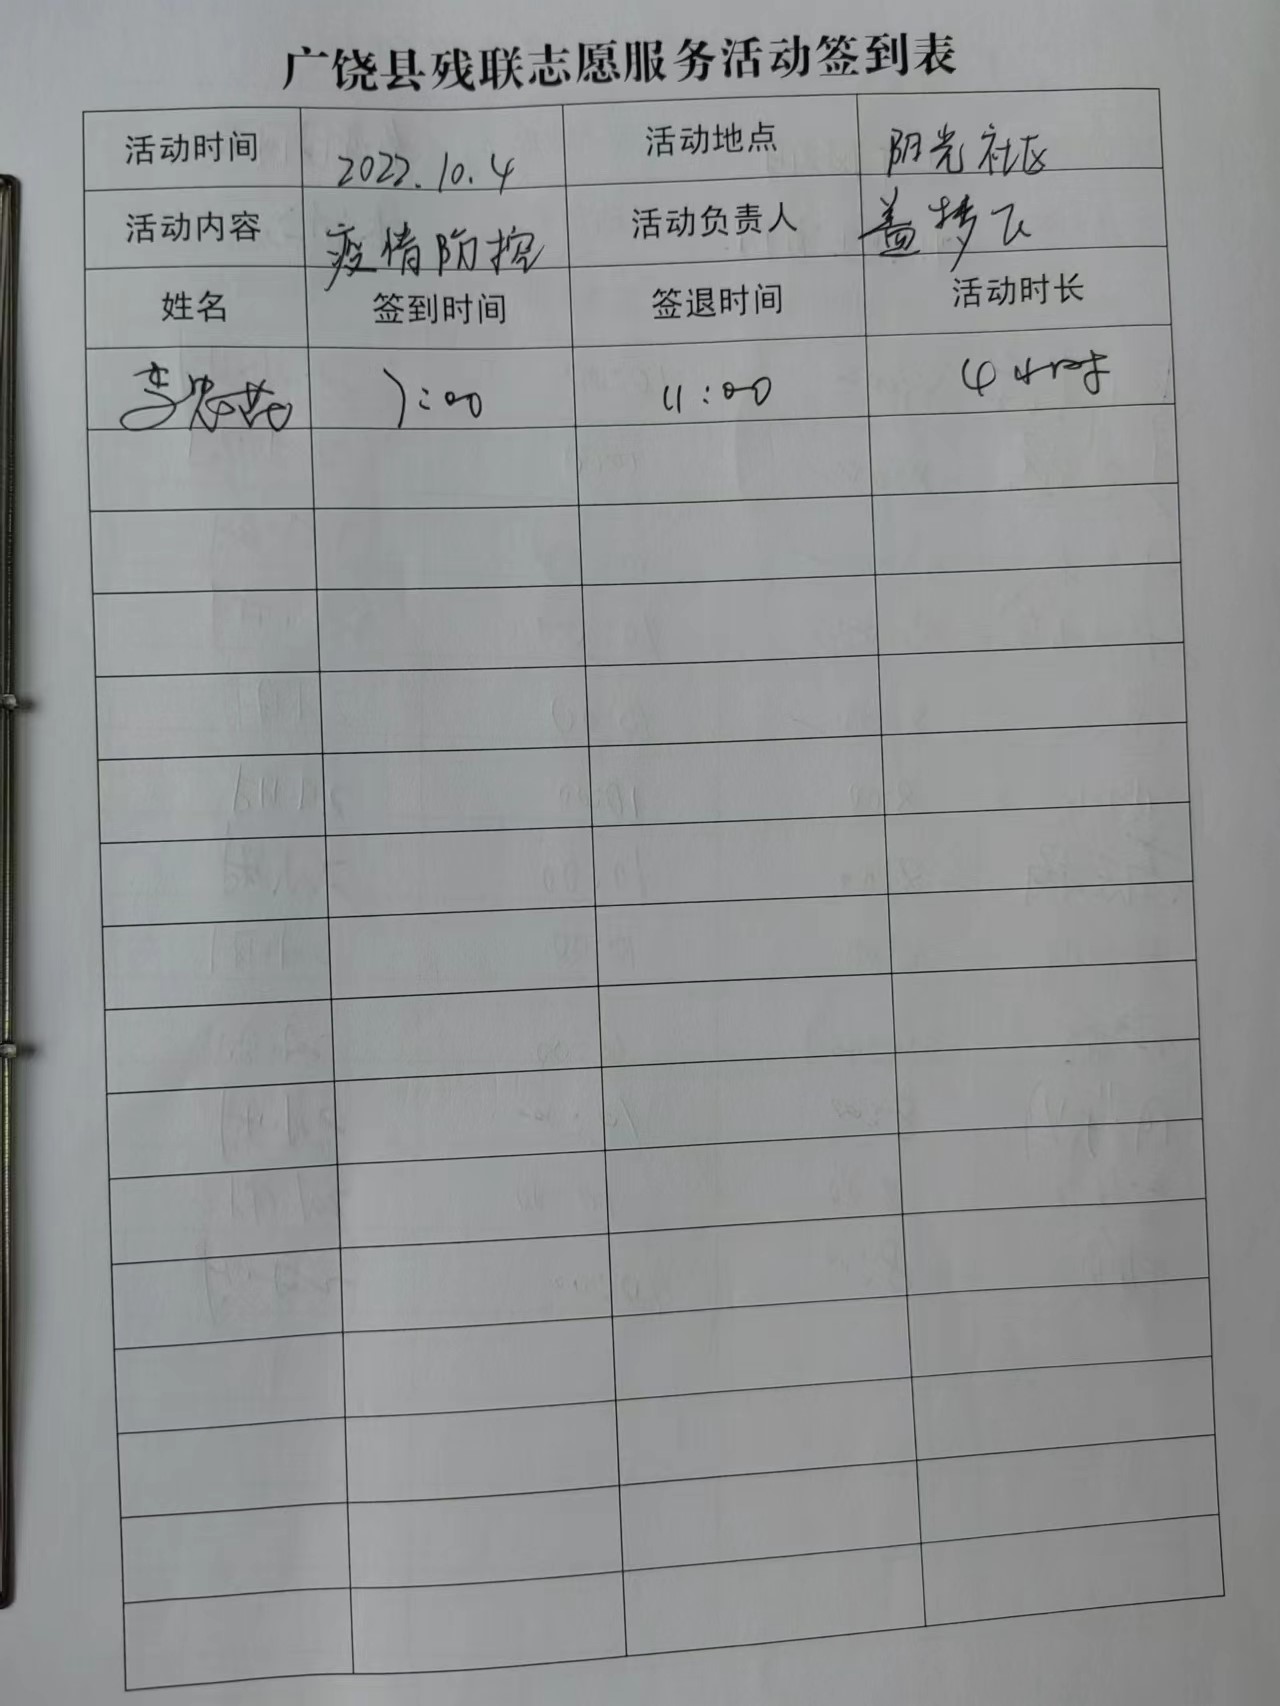 广饶县残联志愿服务活动签到表
活动时间 2022.10.4 活动地点 阳光社区
活动内容 疫情防控 活动负责人 盖梦飞
姓名 签到时间 签退时间 活动时长
李 7:00 11:00 4小时